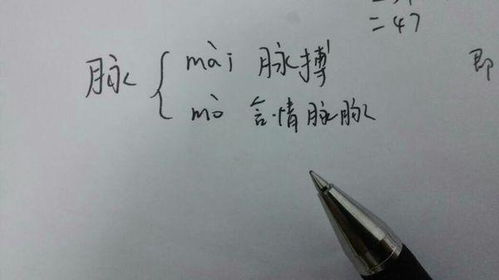 =47
即
脉 { mài 脉搏
mò 含情脉脉